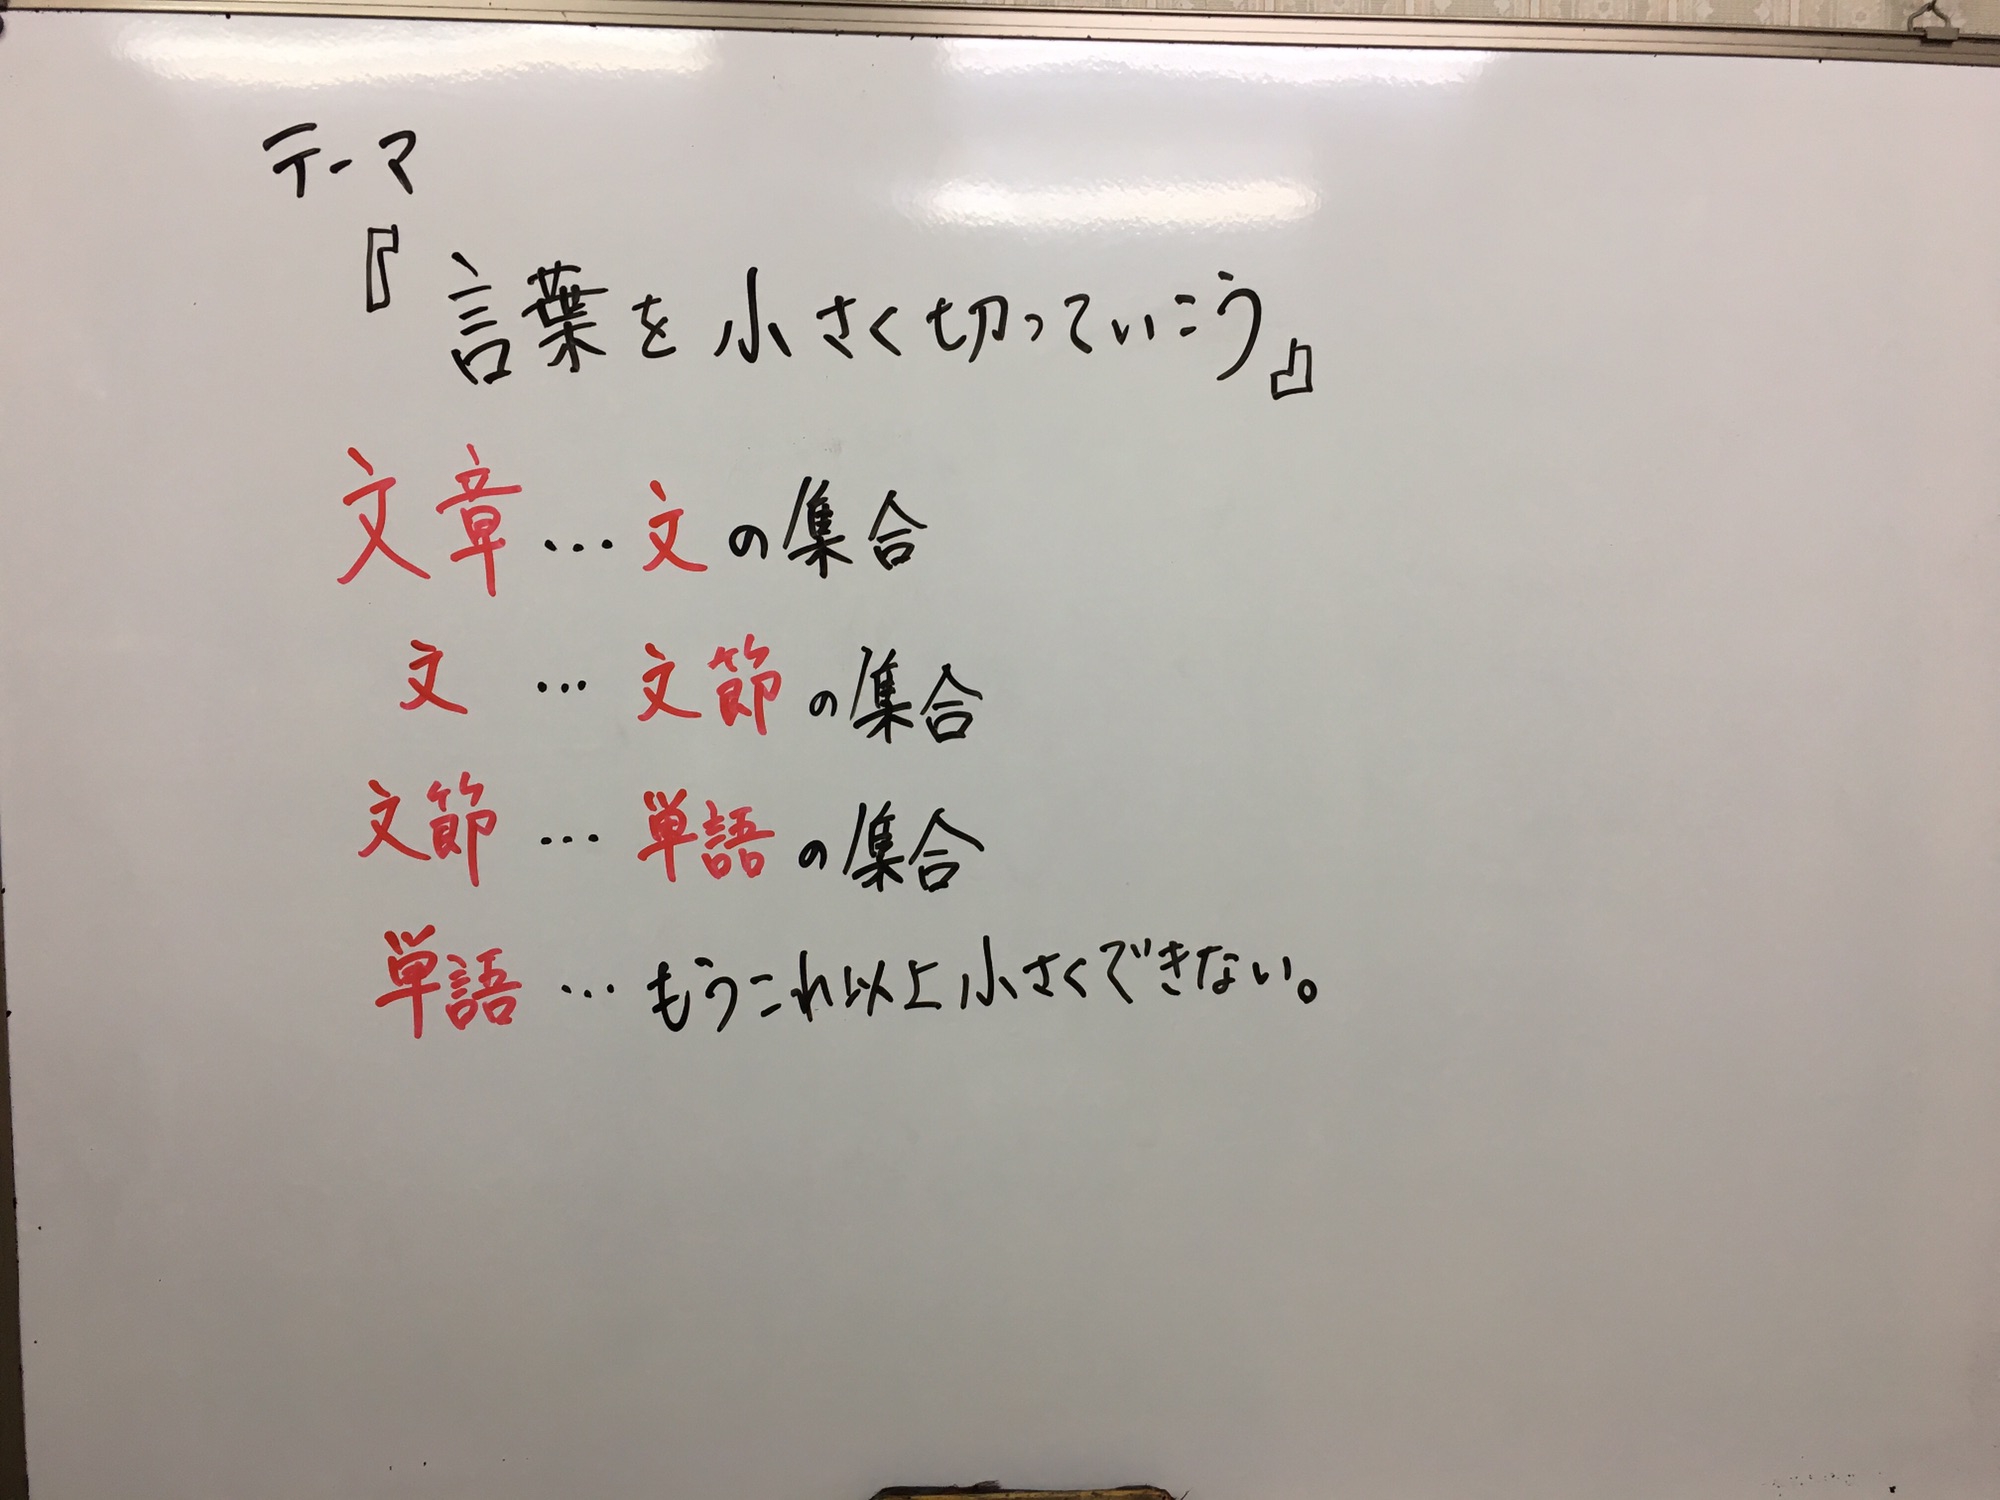 テーマ
『言葉を小さく切っていこう』
文章…文の集合
文…文節の集合
文節…単語の集合
単語…もうこれ以上小さくできない。